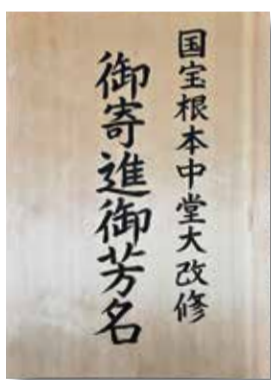 国宝根本中堂大改修
御寄進御芳名